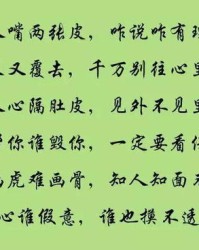 嘴两张皮，咋说咋有
人又覆去，千万别往心
人心隔肚皮，见外不见
你谁毁你，一定要看
虎难画骨，知人知面
心谁假意，谁也摸不透